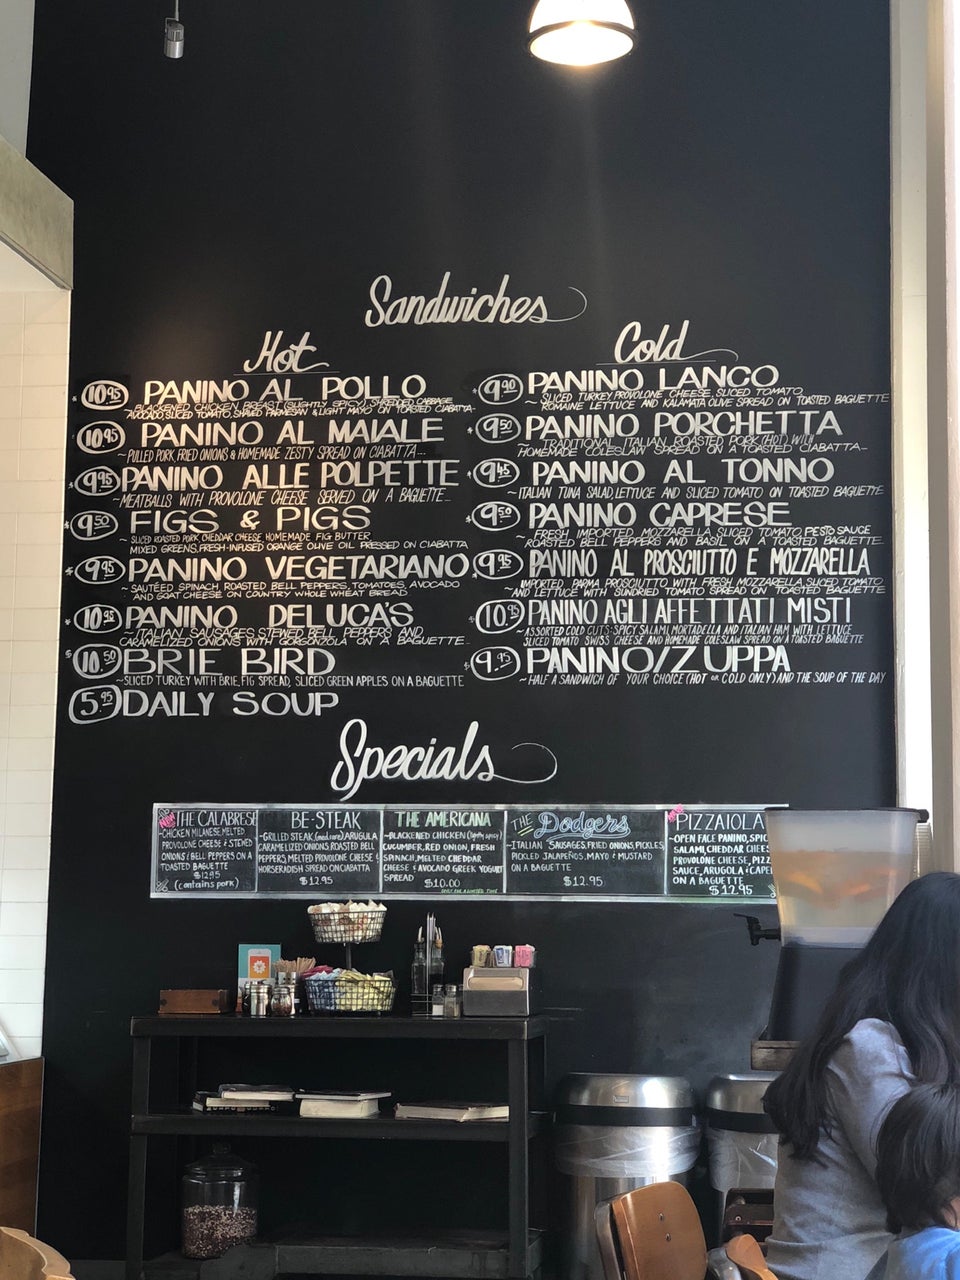 Sandwiches
Hot
10.95 PANINO AL POLLO
~BLACKENED CHICKEN BREAST (SLIGHTLY SPICY), SHREDDED CABBAGE,
AVOCADO, SLICED TOMATO, SHAVED PARMESAN & LIGHT MAYO ON TOASTED CIABATTA~
10.95 PANINO AL MAIALE
~PULLED PORK, FRIED ONIONS & HOMEMADE ZESTY SPREAD ON CIABATTA...
9.95 PANINO ALLE POLPETTE
~MEATBALLS WITH PROVOLONE CHEESE SERVED ON A BAGUETTE...
9.50 FIGS & PIGS
~SLICED ROASTED PORK, CHEDDAR CHEESE, HOMEMADE FIG BUTTER
MIXED GREENS, FRESH-INFUSED ORANGE OLIVE OIL PRESSED ON CIABATTA
9.95 PANINO VEGETARIANO
~SAUTÉED SPINACH ROASTED BELL PEPPERS, TOMATOES, AVOCADO
AND GOAT CHEESE ON COUNTRY WHOLE WHEAT BREAD
10.95 PANINO DELUCA'S
~ITALIAN SAUSAGES, STEWED BELL PEPPERS AND
CARAMELIZED ONIONS WITH GORGONZOLA ON A BAGUETTE
10.50 BRIE BIRD
~SLICED TURKEY WITH BRIE, FIG SPREAD, SLICED GREEN APPLES ON A BAGUETTE
5.95 DAILY SOUP
Cold
9.90 PANINO LANCO
~SLICED TURKEY, PROVOLONE CHEESE, SLICED TOMATO,
ROMAINE LETTUCE AND KALAMATA OLIVE SPREAD ON TOASTED BAGUETTE
9.50 PANINO PORCHETTA
~TRADITIONAL ITALIAN ROASTED PORK (HOT) WITH
HOMEMADE COLESLAW SPREAD ON A TOASTED CIABATTA...
9.45 PANINO AL TONNO
~ITALIAN TUNA SALAD, LETTUCE AND SLICED TOMATO ON TOASTED BAGUETTE
9.50 PANINO CAPRESE
~FRESH IMPORTED MOZZARELLA, SLICED TOMATO, PESTO SAUCE
ROASTED BELL PEPPERS AND BASIL ON A TOASTED BAGUETTE
9.95 PANINO AL PROSCIUTTO E MOZZARELLA
IMPORTED PARMA PROSCIUTTO WITH FRESH MOZZARELLA, SLICED TOMATO
AND LETTUCE WITH SUNDRIED TOMATO SPREAD ON TOASTED BAGUETTE
10.95 PANINO AGLI AFFETTATI MISTI
~ASSORTED COLD CUTS: SPICY SALAMI, MORTADELLA AND ITALIAN HAM WITH LETTUCE
SLICED TOMATO SWISS CHEESE AND HOMEMADE COLESLAW SPREAD ON A TOASTED BAGUETTE
9.95 PANINO/ZUPPA
~HALF A SANDWICH OF YOUR CHOICE (HOT OR COLD ONLY) AND THE SOUP OF THE DAY
Specials
THE CALABRESE
~CHICKEN MILANESE, MELTED
PROVOLONE CHEESE & STEWED
ONIONS/BELL PEPPERS ON A
TOASTED BAGUETTE
$12.95
(contains pork)
BE-STEAK
~GRILLED STEAK, (med rare), ARUGULA
CARAMELIZED ONIONS, ROASTED BELL
PEPPERS, MELTED PROVOLONE CHEESE &
HORSERADISH SPREAD ON CIABATTA
$12.95
THE AMERICANA
~BLACKENED CHICKEN (lightly spicy),
CUCUMBER, RED ONION, FRESH
SPINACH, MELTED CHEDDAR
CHEESE & AVOCADO GREEK YOGURT
SPREAD
$10.00
ONLY FOR A LIMITED TIME
THE Dodgers
~ITALIAN SAUSAGES, FRIED ONIONS, PICKLES,
PICKLED JALAPEÑOS, MAYO & MUSTARD
ON A BAGUETTE
$12.95
PIZZAIOLA
OPEN FACE PANINO, SPIC
SALAMI, CHEDDAR CHEES
PROVOLONE CHEESE, PIZZ
SAUCE, ARUGOLA & CAPE
ON A BAGUETTE
$12.95